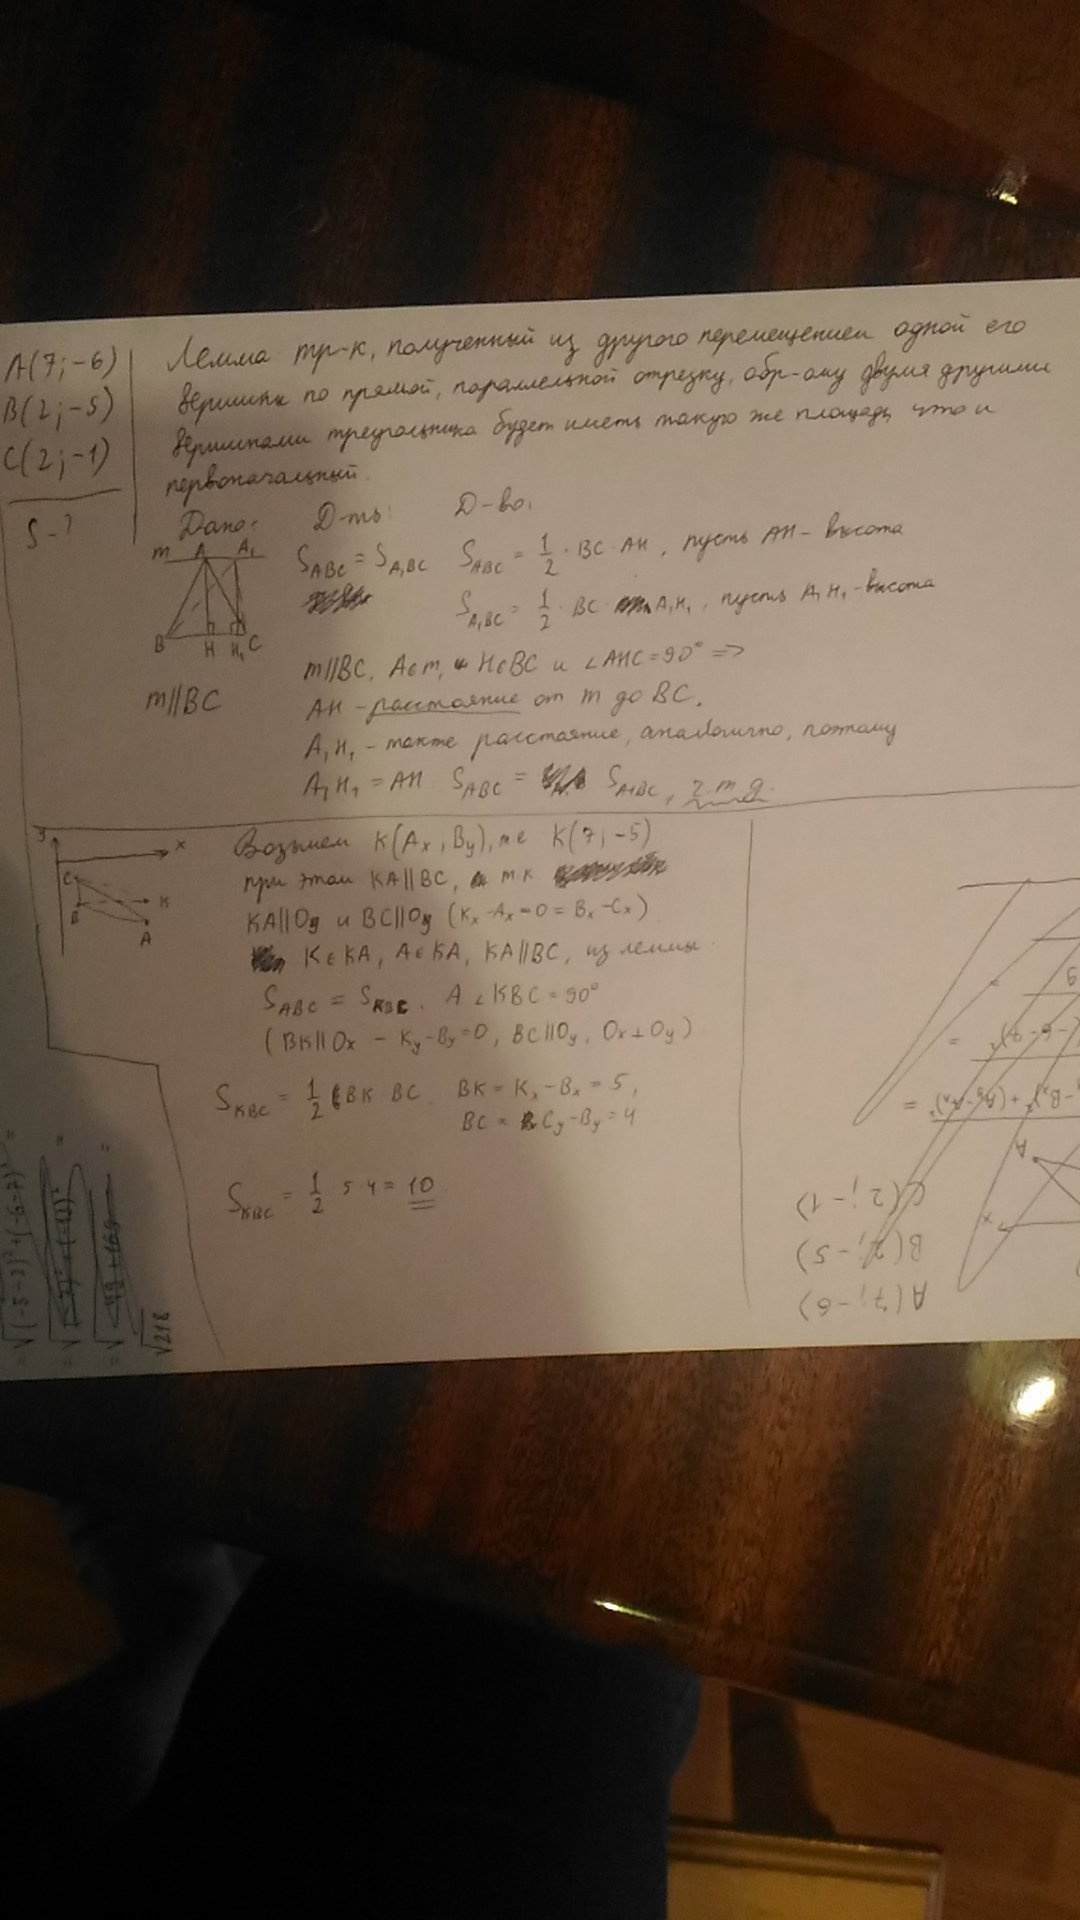 A(7;-6)
B(2;-5)
C(2;-1)
S-?
Лемма: тр-к, полученный из другого перемещением одной его
вершины по прямой, параллельной отрезку, обр-ому двумя другими
вершинами треугольника будет иметь такую же площадь, что и
первоначальный.
Дано: Д-ть: Д-во:
m A A₁
B H H₁ C
m||BC
S_ABC = S_A₁BC S_ABC = 1/2 · BC · AH, пусть AH - высота
S_A₁BC = 1/2 · BC · A₁H₁, пусть A₁H₁ - высота
m||BC, A∈m, H∈BC и ∠AHC=90° =>
AH - расстояние от m до BC.
A₁H₁ - также расстояние, аналогично, поэтому
A₁H₁ = AH. S_ABC = S_A₁BC, ч.т.д.
y x
C
B K
A
Возьмем K(Ax; By), т.е. K(7;-5)
при этом KA||BC, т.к.
KA||Oy и BC||Oy (Kx-Ax=0=Bx-Cx)
K∈KA, A∈KA, KA||BC, из леммы:
S_ABC = S_KBC. А ∠KBC=90°
(BK||Ox - Ky-By=0, BC||Oy, Ox⊥Oy).
S_KBC = 1/2 BK · BC. BK = Kx-Bx = 5,
BC = Cy-By = 4
S_KBC = 1/2 · 5 · 4 = 10
= √(-5-2)²+(-6-7)² =
= √(-7)²+(-13)² =
= √49+169 =
√218
A(7;-6)
B(2;-5)
C(2;-1)
x
A